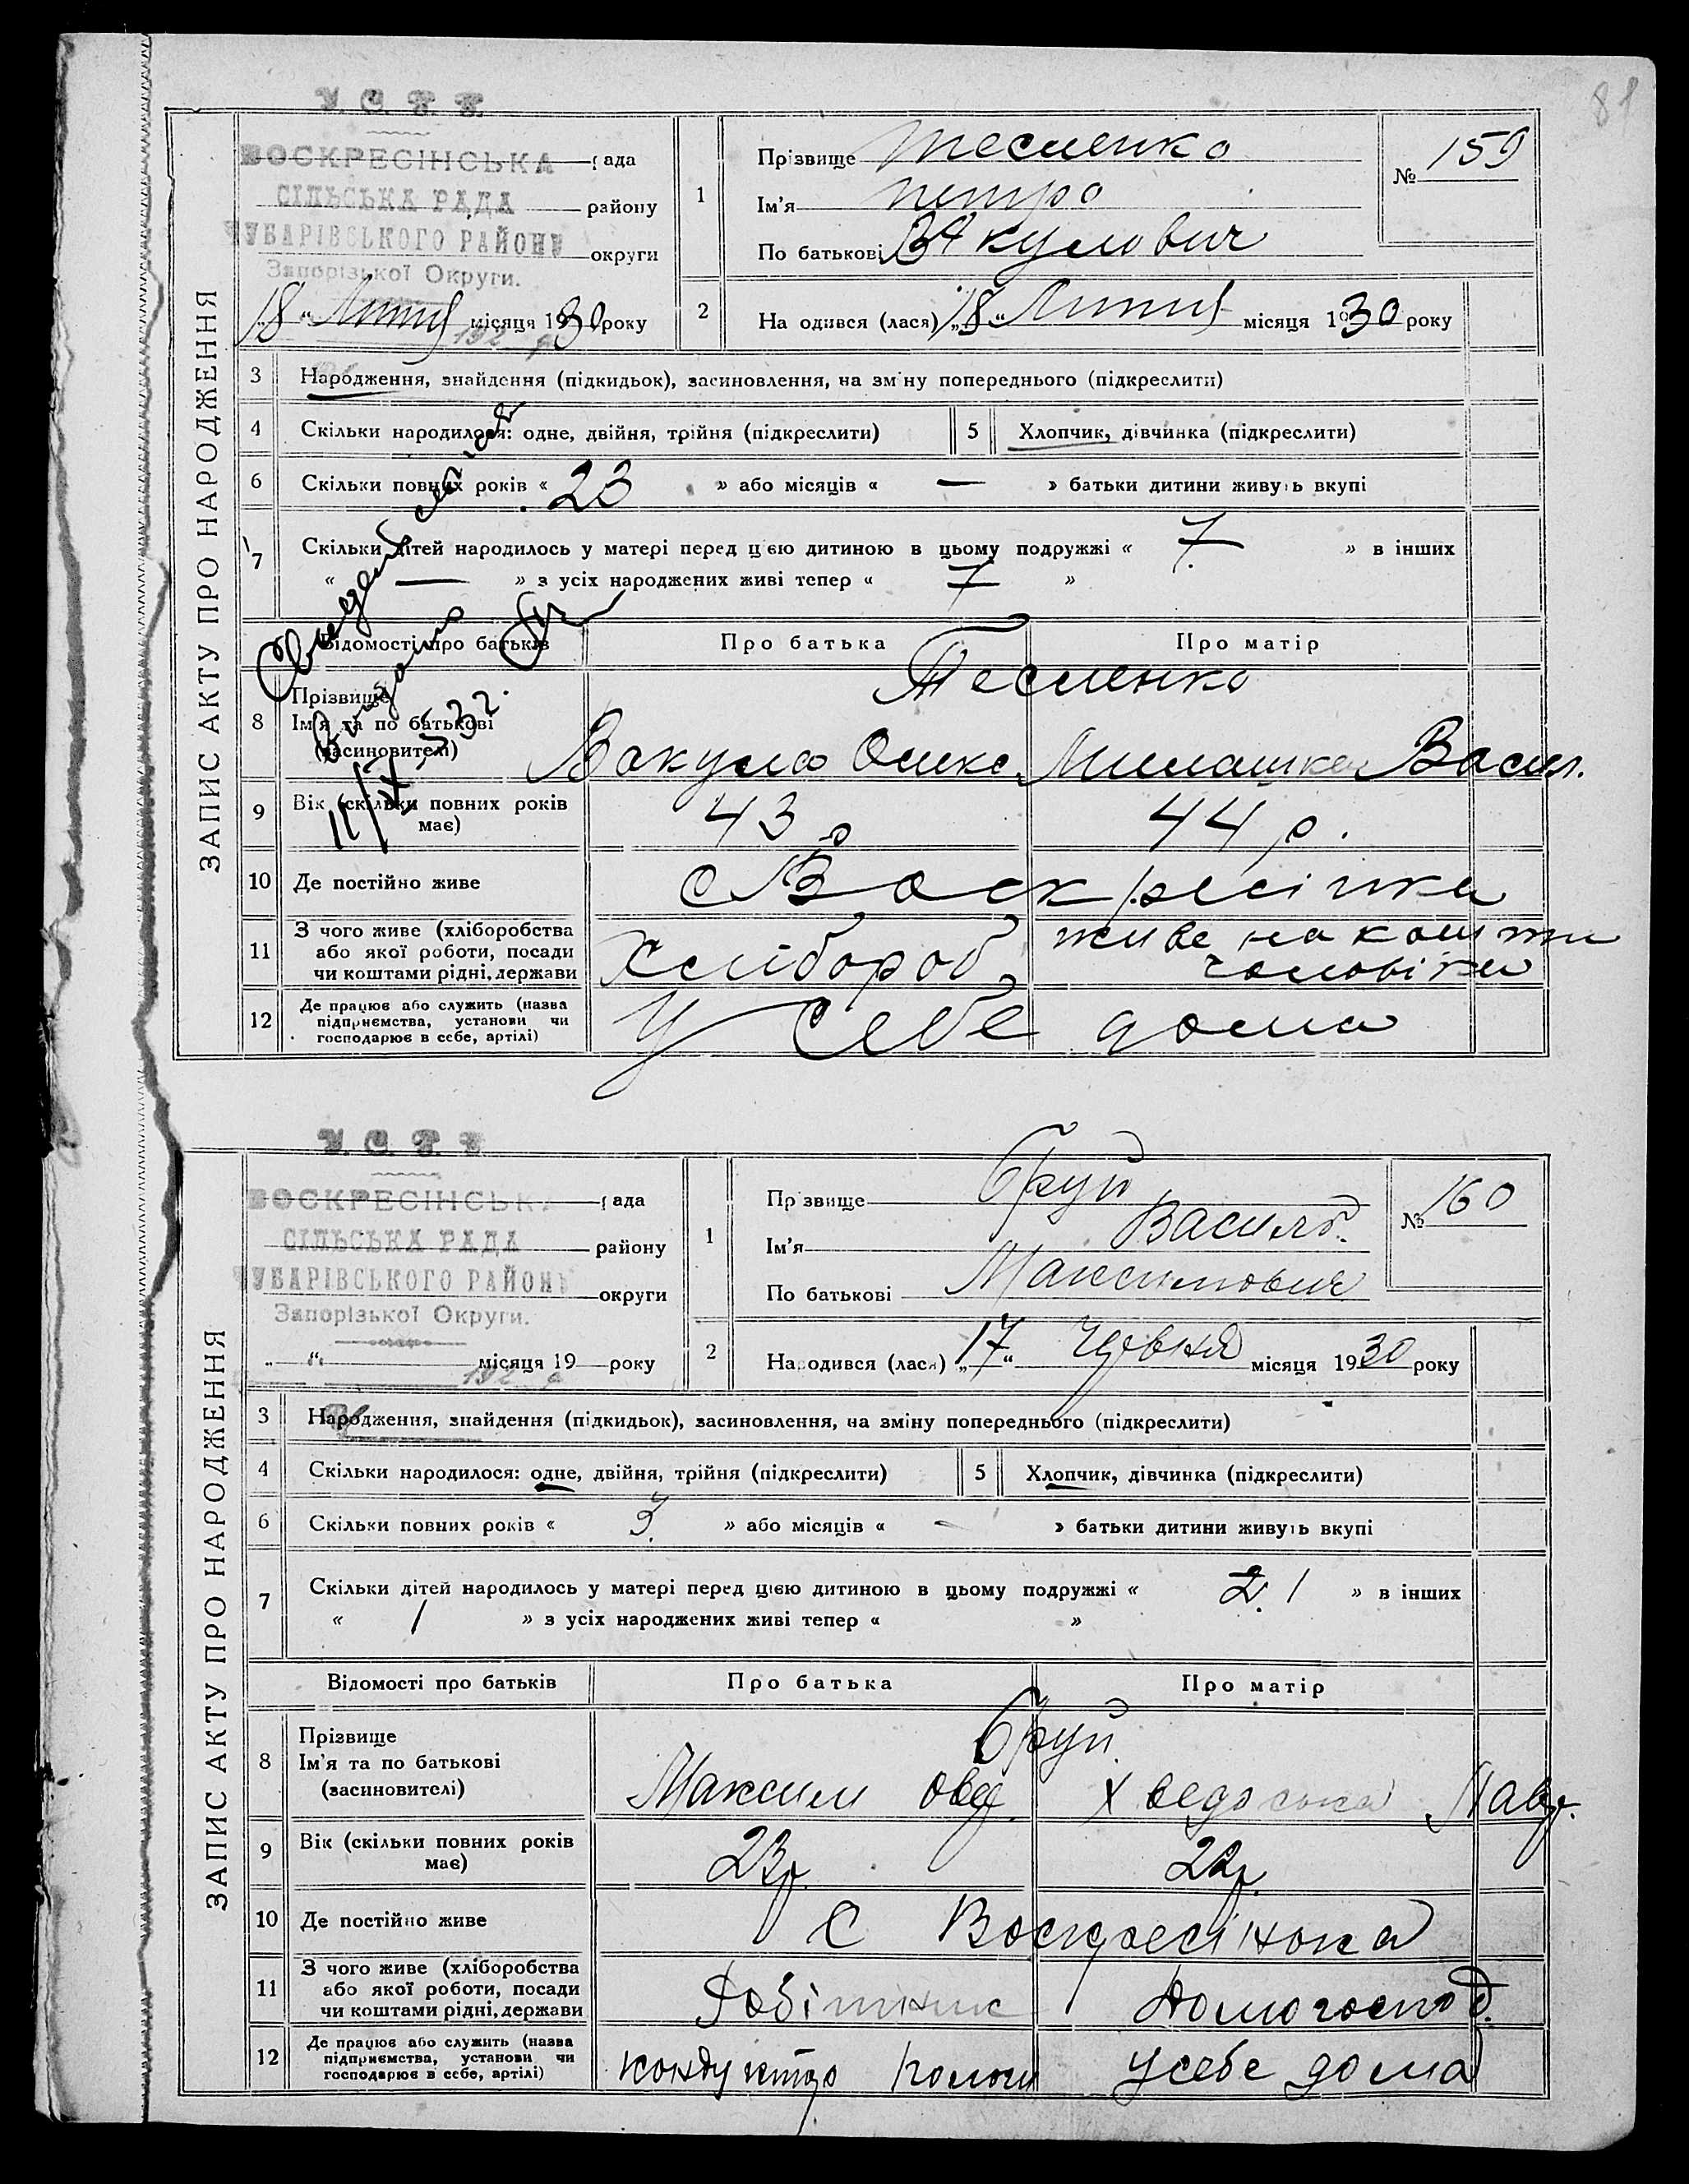 81
У. С. Р. Р.
ВОСКРЕСІНСЬКА рада
СІЛЬСЬКА РАДА району
ЧУБАРІВСЬКОГО РАЙОНУ округи
Запорізької Округи.
„18“ Липня місяця 1930 року
1
Прізвище Тесленко
Ім'я Петро
По батькові Вакулович
№ 159
2
На одився (лася) „18“ Липня місяця 1930 року
ЗАПИС АКТУ ПРО НАРОДЖЕННЯ
3 Народження, знайдення (підкидьок), засиновлення, на зміну попереднього (підкреслити)
4 Скільки народилося: одне, двійня, трійня (підкреслити)
5 Хлопчик, дівчинка (підкреслити)
6 Скільки повних років « 23 » або місяців « — » батьки дитини живуть вкупі
7 Скільки дітей народилось у матері перед цією дитиною в цьому подружжі « 7 » в інших
« — » з усіх народжених живі тепер « 7 »
Видано
11/IX 32.
Відомості про батьків Про батька Про матір
8 Прізвище
Ім'я та по батькові
(засиновителі)
Тесленко
Вакула Олекс. Милашка Васил.
9 Вік (скільки повних років
має)
43 р 44 р.
10 Де постійно живе
с Воскресінка
11 З чого живе (хліборобства
або якої роботи, посади
чи коштами рідні, держави
Хлібороб живе на кошти
чоловіка
12 Де працює або служить (назва
підприємства, установи чи
господарює в себе, артілі)
У себе дома
У. С. Р. Р.
ВОСКРЕСІНСЬКА рада
СІЛЬСЬКА РАДА району
ЧУБАРІВСЬКОГО РАЙОНУ округи
Запорізької Округи.
„ “ місяця 19 року
192 р
1
Прізвище Бруй
Ім'я Василь
По батькові Максимович
№ 160
2
Народився (лася) „17“ Червня місяця 1930 року
ЗАПИС АКТУ ПРО НАРОДЖЕННЯ
3 Народження, знайдення (підкидьок), засиновлення, на зміну попереднього (підкреслити)
4 Скільки народилося: одне, двійня, трійня (підкреслити)
5 Хлопчик, дівчинка (підкреслити)
6 Скільки повних років « 3 » або місяців « - » батьки дитини живуть вкупі
7 Скільки дітей народилось у матері перед цією дитиною в цьому подружжі « 2. 1 » в інших
« 1 » з усіх народжених живі тепер « »
Відомості про батьків Про батька Про матір
8 Прізвище
Ім'я та по батькові
(засиновителі)
Бруй
Максим Овед Хведоська Лавр.
9 Вік (скільки повних років
має)
23р. 22р.
10 Де постійно живе
С Воскресінока
11 З чого живе (хліборобства
або якої роботи, посади
чи коштами рідні, держави
Робітник Домогоспод.
12 Де працює або служить (назва
підприємства, установи чи
господарює в себе, артілі)
кондуктор усебе дома